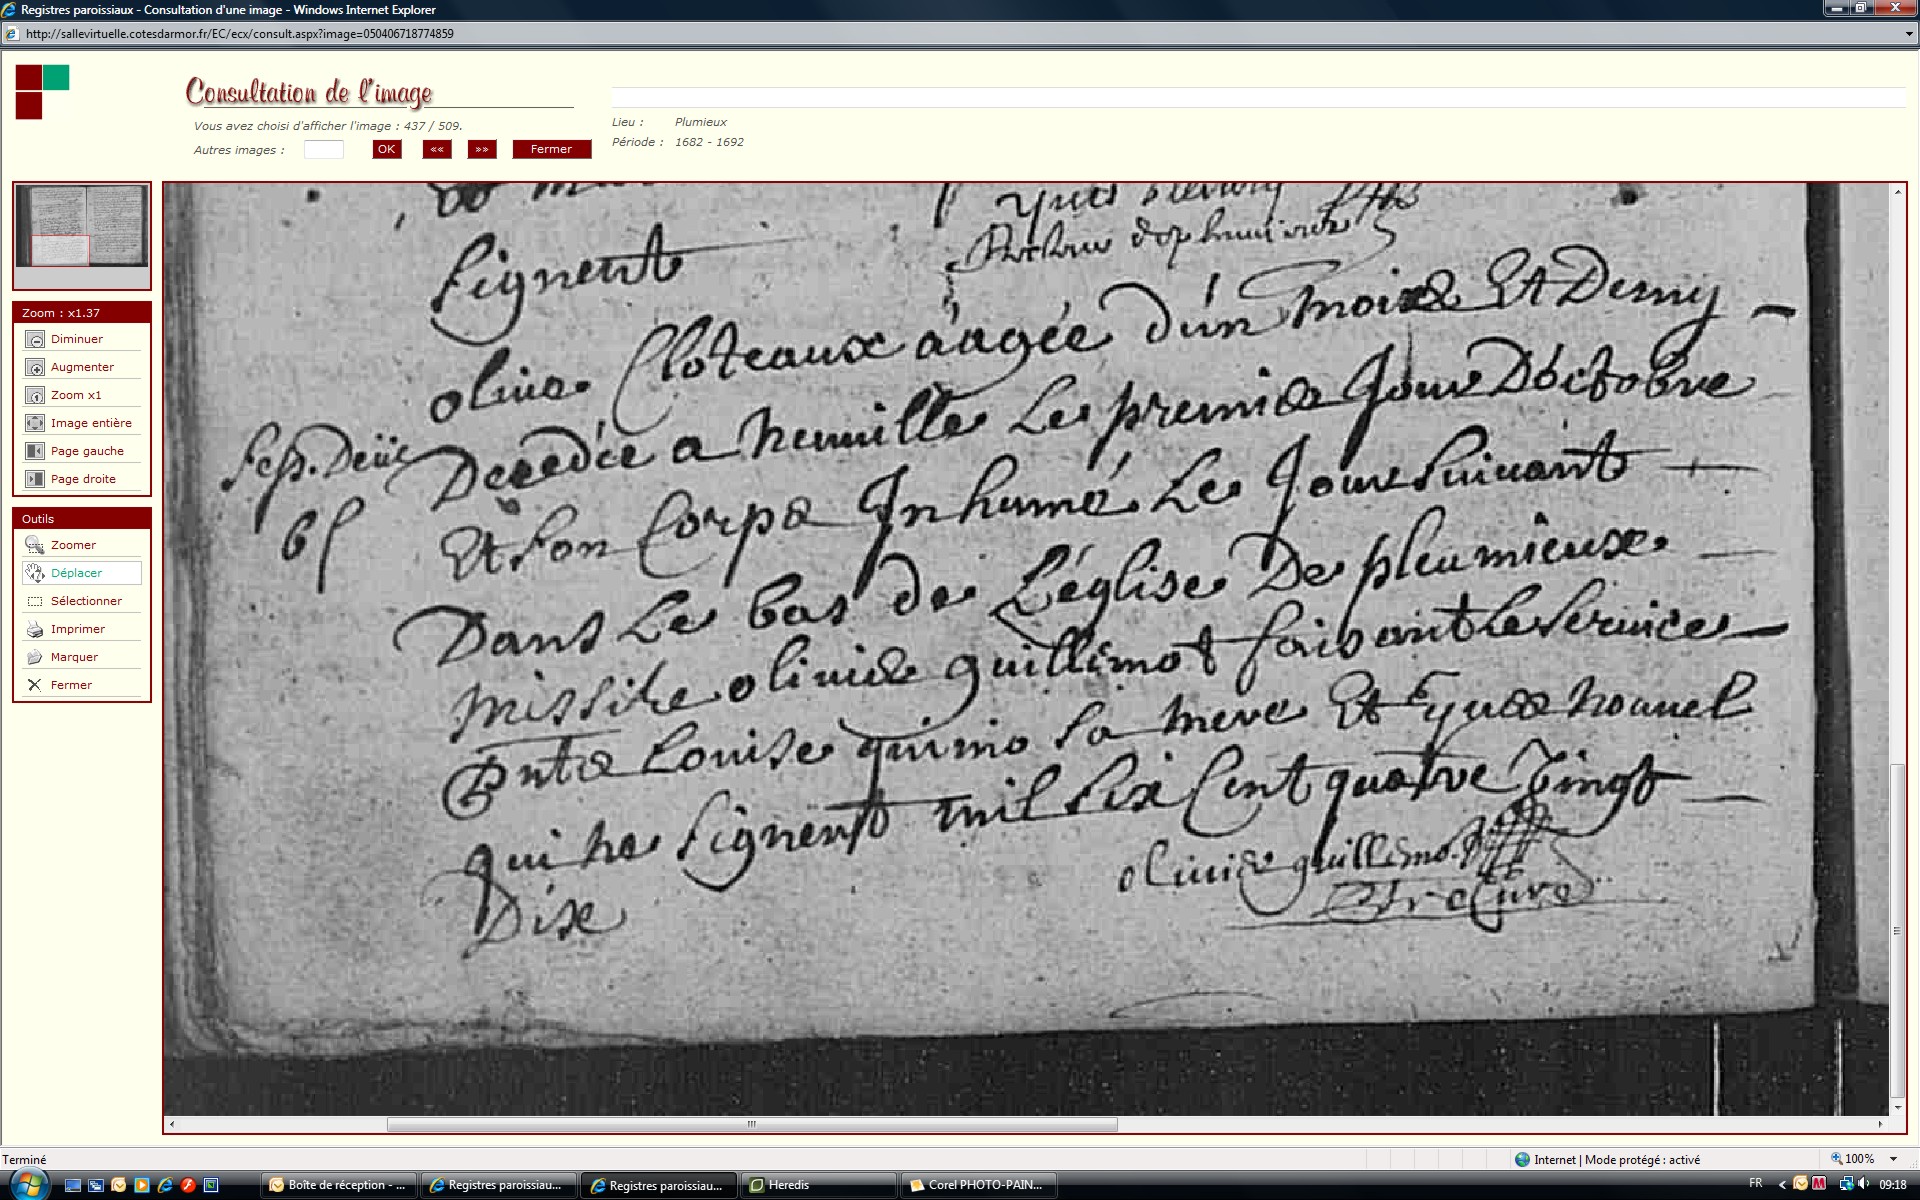 Registres paroissiaux - Consultation d'une image - Windows Internet Explorer
http://sallevirtuelle.cotesdarmor.fr/EC/ecx/consult.aspx?image=050406718774859
Consultation de l'image
Vous avez choisi d'afficher l'image : 437 / 509.
Autres images :
OK
««
»»
Fermer
Lieu : Plumieux
Période : 1682 - 1692
Zoom : x1.37
Diminuer
Augmenter
Zoom x1
Image entière
Page gauche
Page droite
Outils
Zoomer
Déplacer
Sélectionner
Imprimer
Marquer
Fermer
yues
Recteur de plumieux
signent
oliue Cloteaux aágée d'ún mois Et Demy
Decedée a heuuille Le premier Jour D'octobre
Et son Corps Inhumé Le Jour suiuant
Dans Le bas de L'église De pleumieux
missire oliuier guillemot faisant le seruice
Entre Louise guimo sa mere Et yues houuel
qui ne signent mil six Cent quatre Vingt
Dix
oliuier guillemot
ptre Curé
Terminé
Internet | Mode protégé : activé
100%
Boîte de réception - ...
Registres paroissiau...
Registres paroissiau...
Heredis
Corel PHOTO-PAIN...
FR
09:18